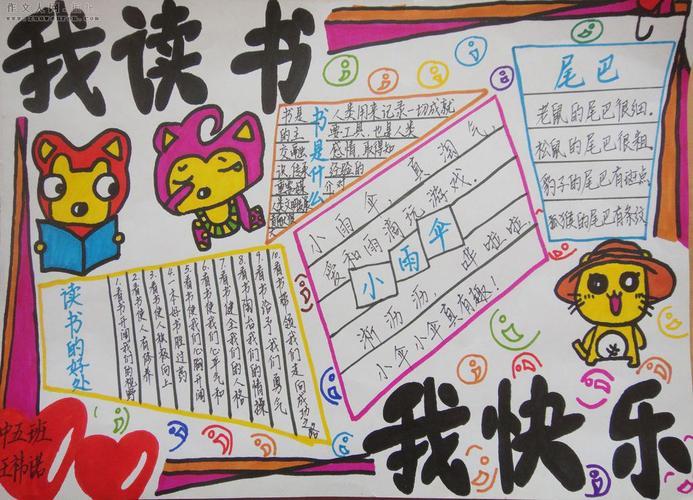 我读书
书是什么
书是 人类用来记录一切成就
的主 要工具，也是人类
交融 感情，取得知
识，传承 经验的
重要媒 介，对
尾巴
老鼠的尾巴很细。
松鼠的尾巴很粗。
豹子的尾巴有斑点。
狐猴的尾巴有条纹。
小雨伞
小雨伞，真淘气，
爱和雨滴玩游戏。
淅沥沥，哗啦啦，
小伞小伞真有趣！
读书的好处
1.看书开阔我们的视野
2.看书使人有修养
3.看书使人积极向上
4.一本好书胜过药
5.看书使我们心胸开阔
6.看书使我们心平气和
7.看书健全我们的人格
8.看书陶冶我们的情操
9.看书给予我们勇气
10.看书带领我们走向成功之路
我快乐
中五班
王祎诺